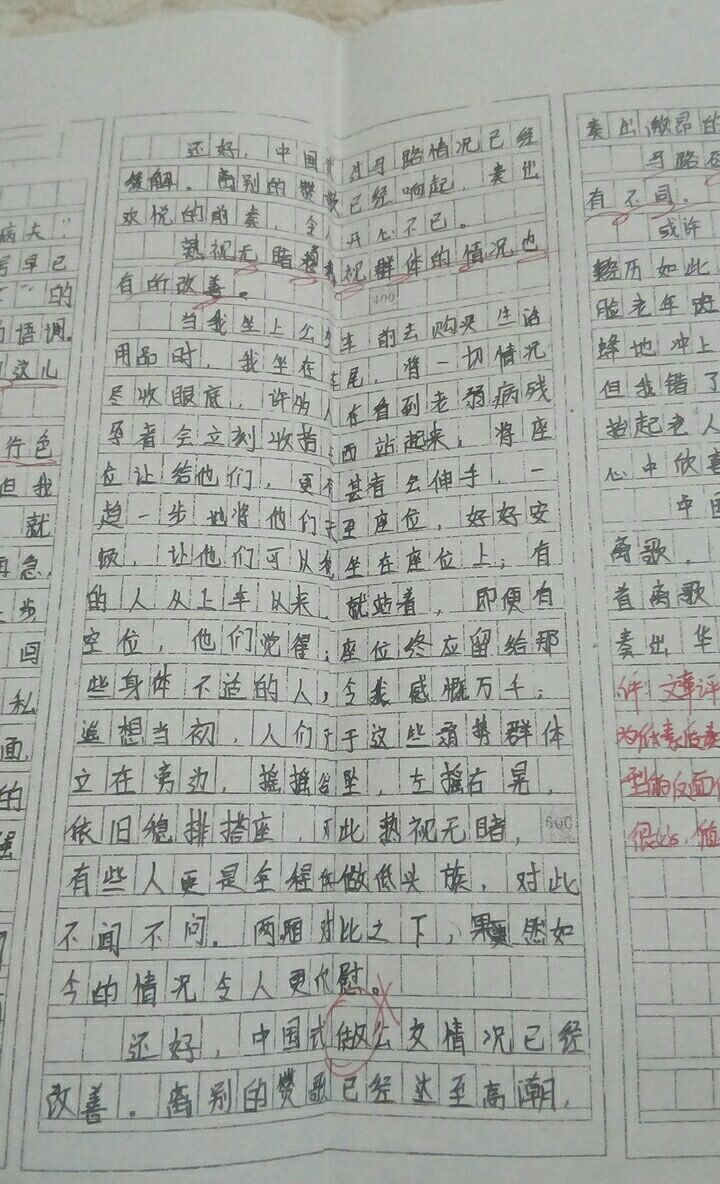 病夫"
早已
"的
语调。
这儿
行色
但我
就
再急,
步
私
面,
的
还好,中国式过马路情况已经
缓解。离别的赞歌已经响起,奏出
欢悦的前奏,令人开心不已。
熟视无睹漠视群体的情况也
有所改善。
400
当我坐上公交车的去购买生活
用品时,我坐在车尾,将一切情况
尽收眼底,许多人在看到老弱病残
孕者会立刻收拾东西站起来,将座
位让给他们,更有甚者会伸手,一
趋一步地将他们于至座位,好好安
顿,让他们可以坐在座位上;有
的人从上车以来,就站着,即便有
空位,他们觉得:座位终应留给那
些身体不适的人,令我感慨万千;
追想当初,人们对于这些弱势群体
立在旁边,摇摇欲坠,左摇右晃,
依旧稳排搭座,对此熟视无睹,
600
有些人更是全程做低头族,对此
不闻不问。两厢对比之下,果然如
今的情况令人更欣慰。
还好,中国式做公交情况已经
改善。离别的赞歌已经达至高潮,
奏出激昂的
马路
有不同。
或许
经历如此
脸老年斑
蜂地冲上
但我错了
抬起老人
心中欣喜
中国
离歌,
首离歌
奏出华
评:文章评
型的反面